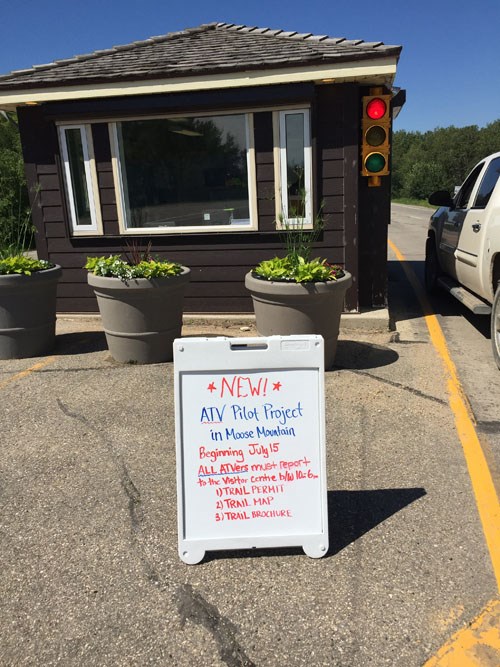 * NEW! *
ATV Pilot Project
in Moose Mountain
Beginning July 15
ALL ATVers must report
to the visitor centre b/w 10-6pm
1) TRAIL PERMIT
2) TRAIL MAP
3) TRAIL BROCHURE